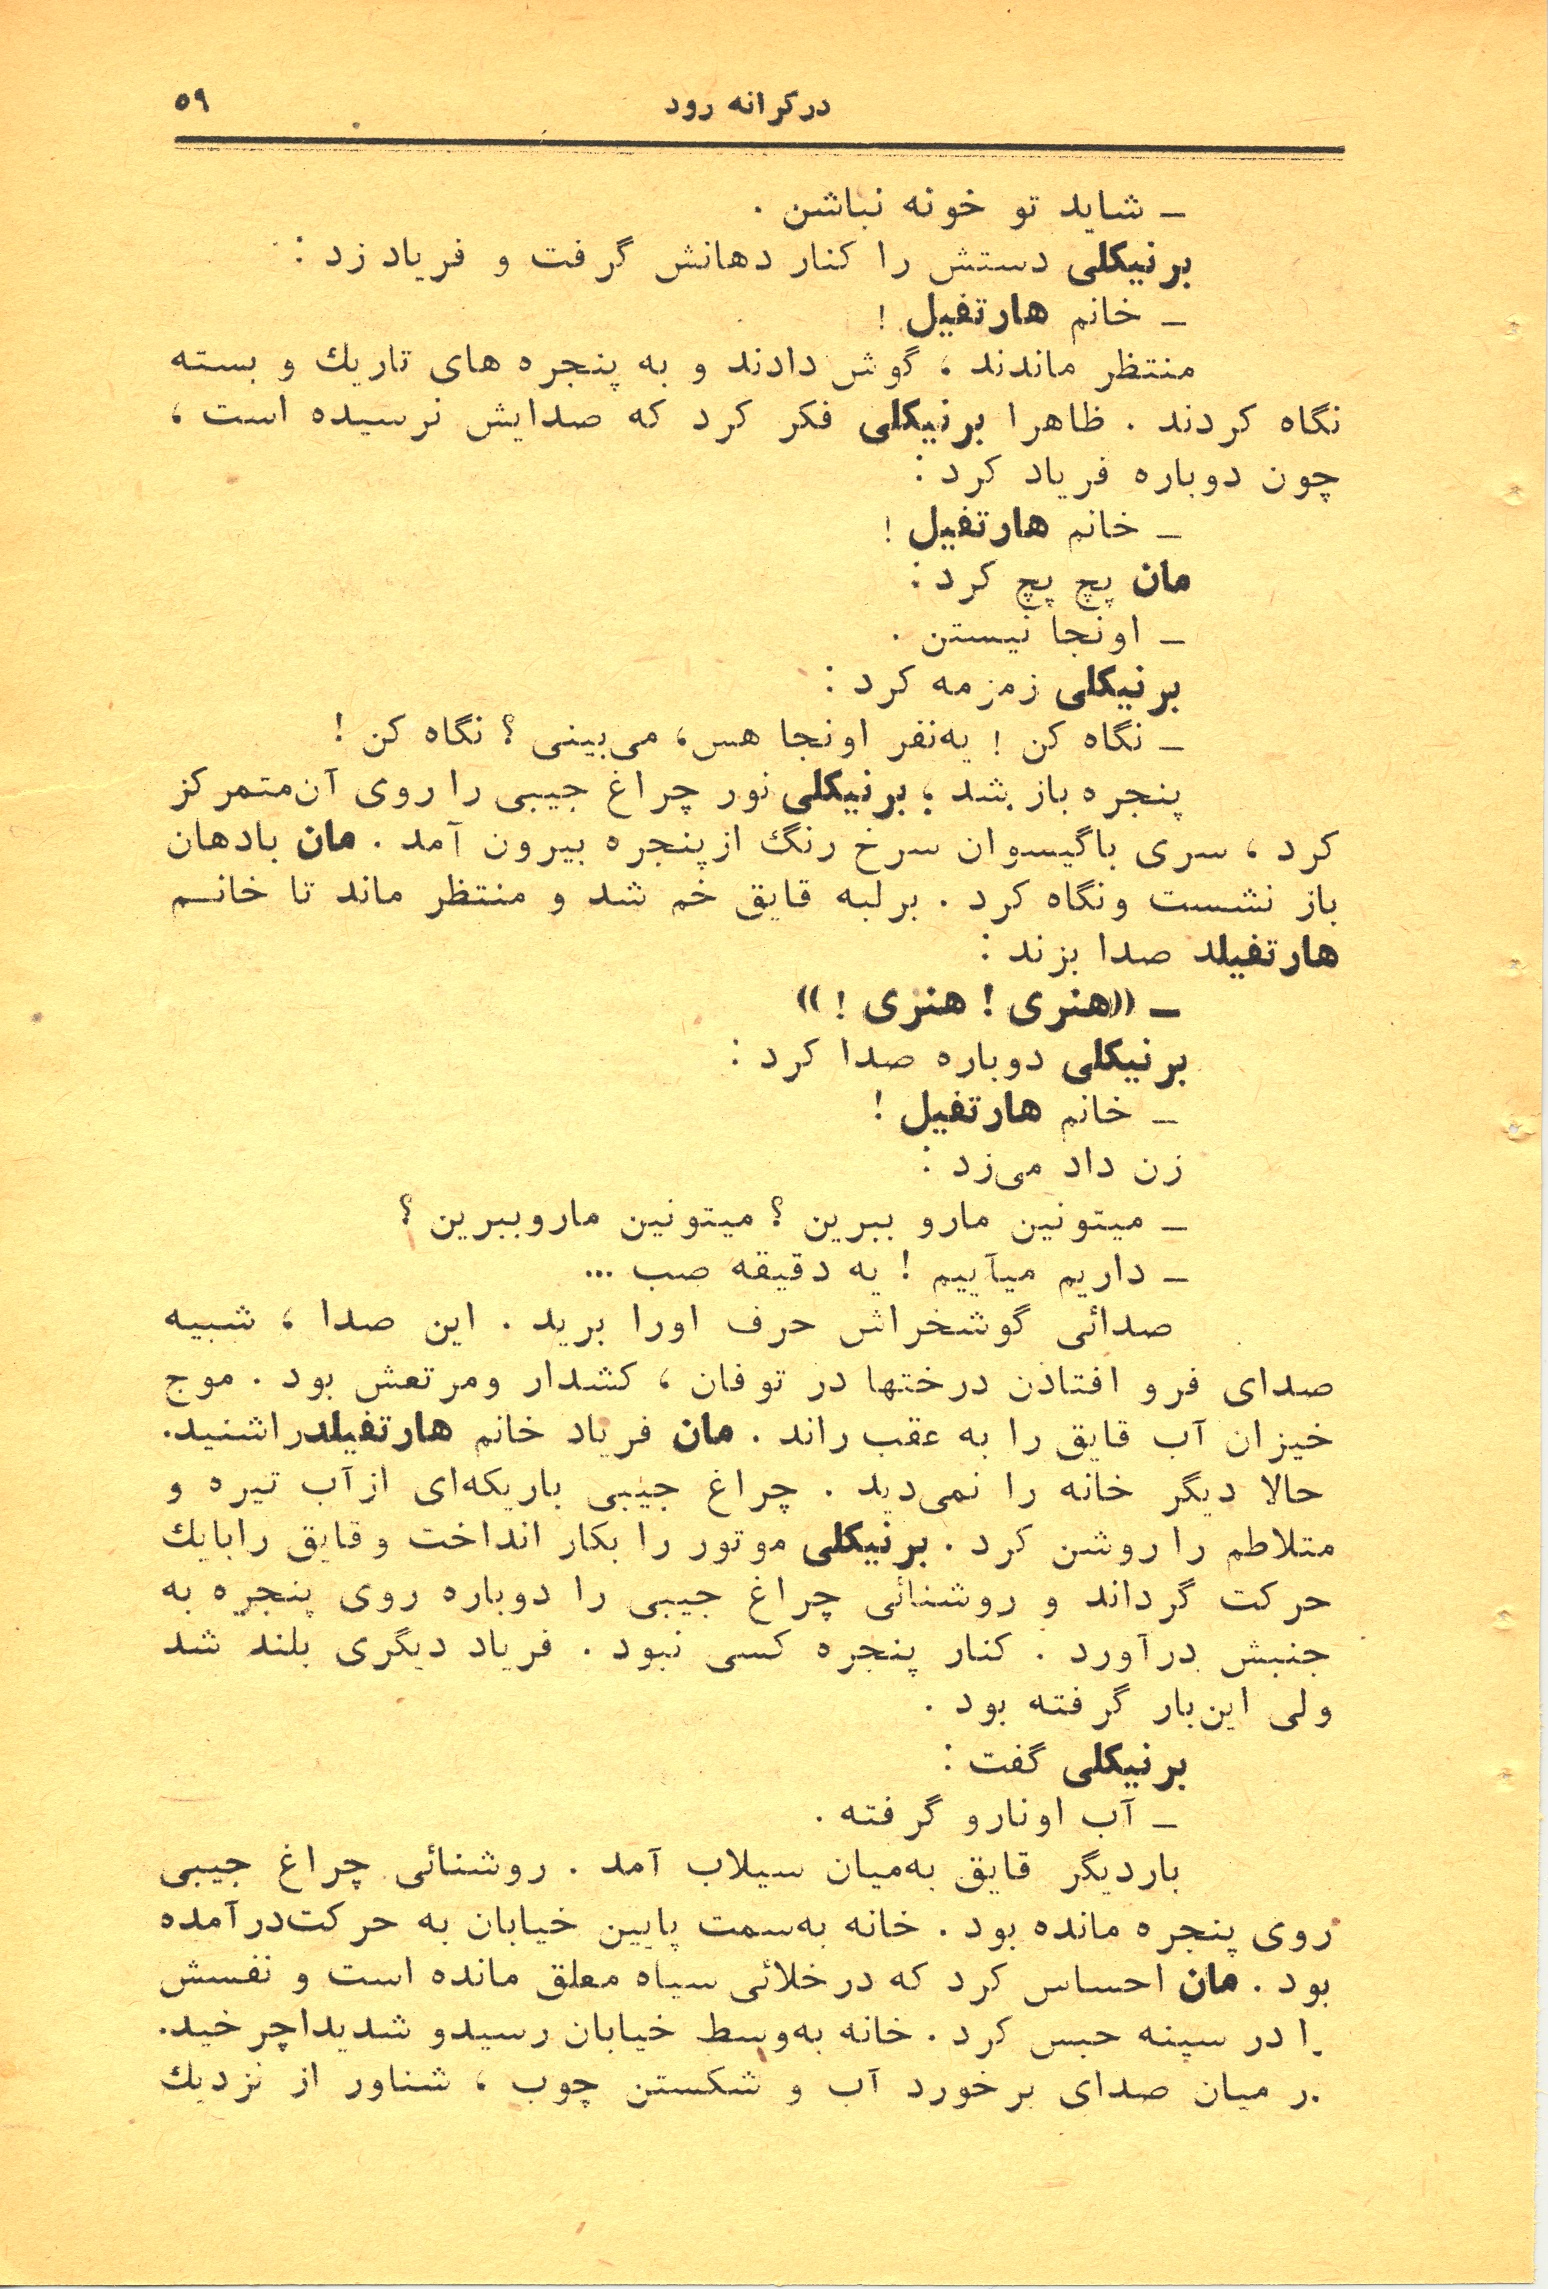 درکرانه رود ۵۹
ـ شاید تو خونه نباشن .
برنیکلی دستش را کنار دهانش گرفت و فریاد زد :
ـ خانم هارتفیل !
منتظر ماندند ، گوش دادند و به پنجره های تاریك و بسته
نگاه کردند . ظاهرا برنیکلی فکر کرد که صدایش نرسیده است ،
چون دوباره فریاد کرد :
ـ خانم هارتفیل !
مان پچ پچ کرد :
ـ اونجا نیستن .
برنیکلی زمزمه کرد :
ـ نگاه کن ! یه‌نفر اونجا هس، می‌بینی ؟ نگاه کن !
پنجره باز شد ؛ برنیکلی نور چراغ جیبی را روی آن‌متمرکز
کرد ، سری باگیسوان سرخ رنگ ازپنجره بیرون آمد . مان بادهان
باز نشست ونگاه کرد . برلبه قایق خم شد و منتظر ماند تا خانـم
هارتفیلد صدا بزند :
ـ ((هنری ! هنری ! ))
برنیکلی دوباره صدا کرد :
ـ خانم هارتفیل !
زن داد می‌زد :
ـ میتونین مارو ببرین ؟ میتونین ماروببرین ؟
ـ داریم میآییم ! یه دقیقه صب ...
صدائی گوشخراش حرف اورا برید . این صدا ، شبیه
صدای فرو افتادن درختها در توفان ، کشدار ومرتعش بود . موج
خیزان آب قایق را به عقب راند . مان فریاد خانم هارتفیلدراشنید.
حالا دیگر خانه را نمی‌دید . چراغ جیبی باریکه‌ای ازآب تیره و
متلاطم را روشن کرد . برنیکلی موتور را بکار انداخت وقایق رابایك
حرکت گرداند و روشنائی چراغ جیبی را دوباره روی پنجره به
جنبش درآورد . کنار پنجره کسی نبود . فریاد دیگری بلند شد
ولی این‌بار گرفته بود .
برنیکلی گفت :
ـ آب اونارو گرفته .
باردیگر قایق به‌میان سیلاب آمد . روشنائی چراغ جیبی
روی پنجره مانده بود . خانه به‌سمت پایین خیابان به حرکت‌درآمده
بود . مان احساس کرد که درخلائی سیاه معلق مانده است و نفسش
را در سینه حبس کرد . خانه به‌وسط خیابان رسیدو شدیداچرخید.
در میان صدای برخورد آب و شکستن چوب ، شناور از نزدیك